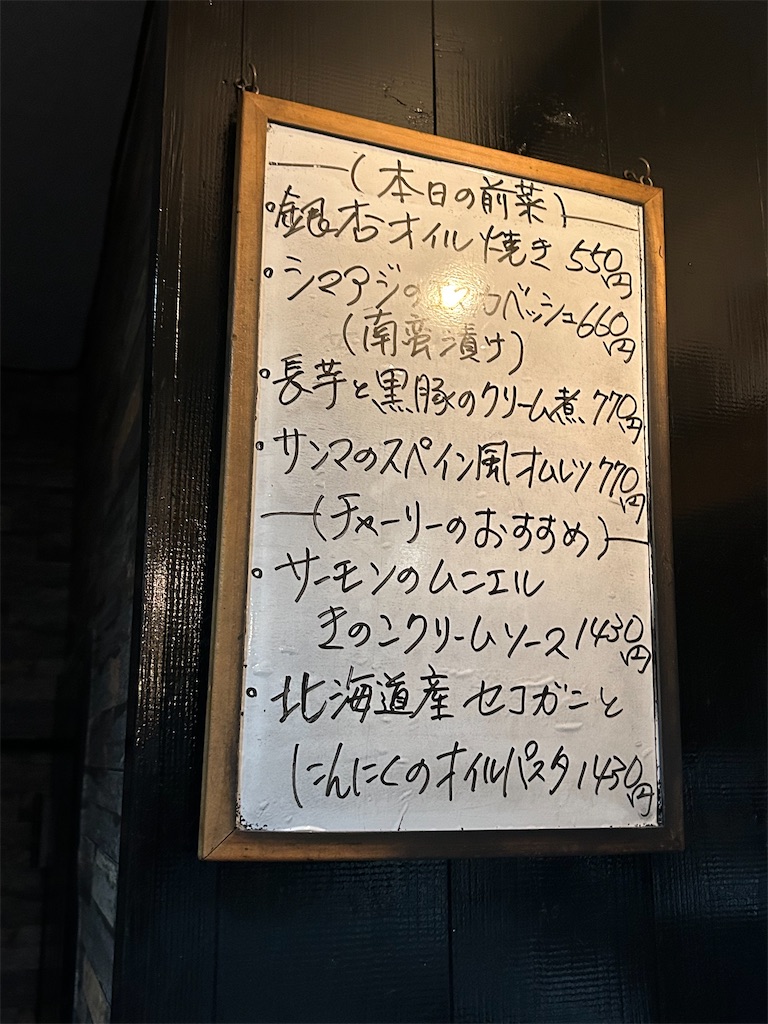 (本日の前菜)
・銀杏オイル焼き 550円
・シマアジの カベッシュ 660円
(南蛮漬け)
・長芋と黒豚のクリーム煮 770円
・サンマのスペイン風オムレツ 770円
(チャーリーのおすすめ)
・サーモンのムニエル
きのこクリームソース 1430円
・北海道産 セコガニと
にんにくのオイルパスタ 1430円